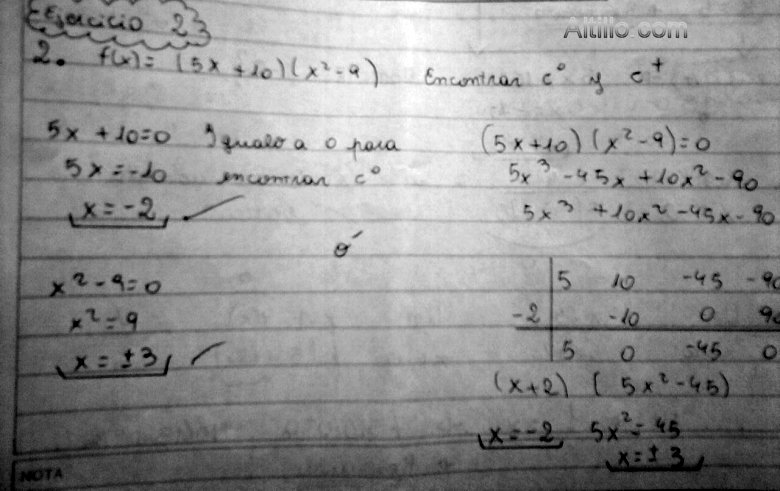 Altillo.com
Ejercicio 23
2. f(x) = (5x+10)(x²-9) Encontrar c° y c⁺
5x+10=0 Igualo a 0 para
5x=-10 encontrar c°
x=-2
ó
x²-9=0
x²=9
x=±3
(5x+10)(x²-9)=0
5x³-45x+10x²-90
5x³+10x²-45x-90
5 10 -45 -90
-2 -10 0 90
5 0 -45 0
(x+2) (5x²-45)
x=-2 5x²=45
x=±3
NOTA